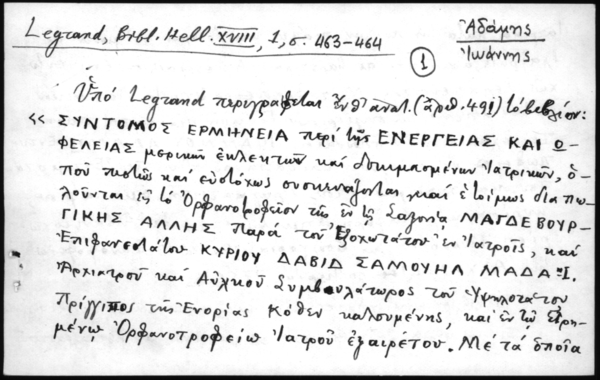 Legrand, Bibl. Hell. XVIII, 1, σ. 463-464
Ἀδάμης
Ἰωάννης
1
Ὑπό Legrand περιγράφεται ἀρ. 491) τό βιβλίον:
« ΣΥΝΤΟΜΟΣ ΕΡΜΗΝΕΙΑ περί τῆς ΕΝΕΡΓΕΙΑΣ ΚΑΙ Ο-
ΦΕΛΕΙΑΣ μερικῶν ἐκλεκτῶν καί δοκιμασμένων Ἰατρικῶν, ὁ-
ποῦ πιστῶς καί εὐστόχως συσκευάζονται καί ἑτοίμως διαπω-
λοῦνται εἰς τό Ὀρφανοτροφεῖον τῆς ἐν τῇ Σαξονίᾳ ΜΑΓΔΕΒΟΥΡ-
ΓΙΚΗΣ ΑΛΛΗΣ Παρά τοῦ Ἐξοχωτάτου ἐν Ἰατροῖς, καί
Ἐπιφανεστάτου ΚΥΡΙΟΥ ΔΑΒΙΔ ΣΑΜΟΥΗΛ ΜΑΔΑΪ.
Ἀρχιατροῦ καί Αὐλικοῦ Συμβουλάτωρος τοῦ Ὑψηλοτάτου
Πρίγγιπος τῆς Ἐνορίας Κόθεν καλουμένης, καί ἐν τῷ Εἰρη-
μένῳ Ὀρφανοτροφείῳ Ἰατροῦ ἐξαιρέτου. Μέ τά ὁποῖα